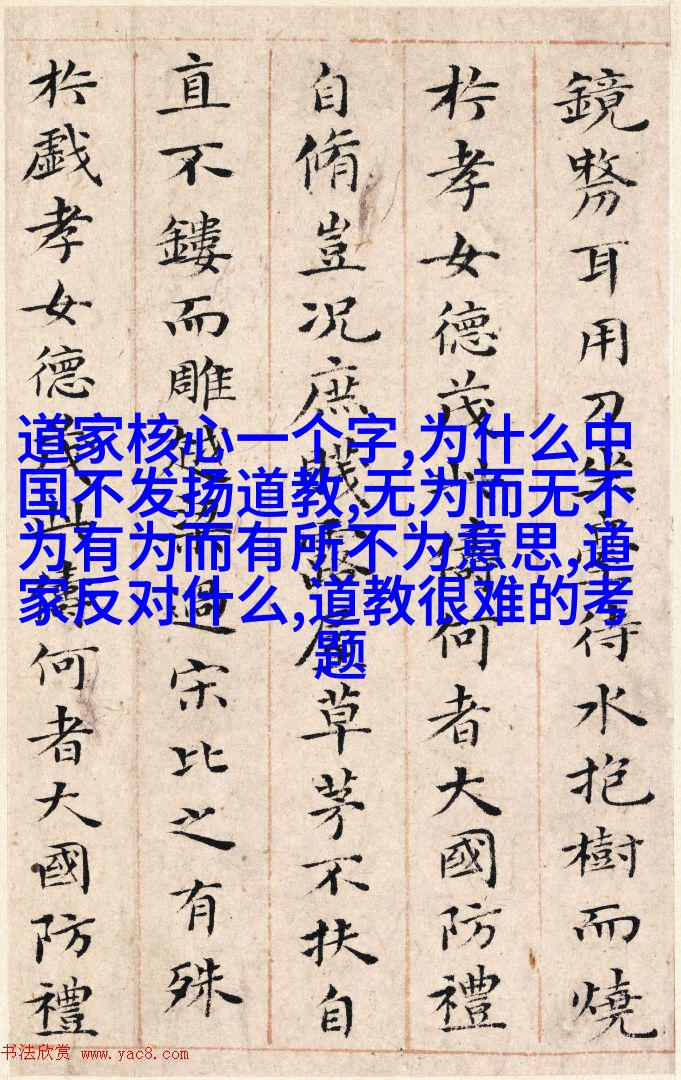 鏡剺耳用刀坐臺待水抱樹而燒
於孝女德茂此儔何者大國防禮
自脩豈况庶賤露屋草茅不扶自
直不鏤而雕越梁過宋比之有殊
於戲孝女德茂此儔何者大國防禮
道家核心一个字,为什么中
国不发扬道教,无为而无不
为有为而有所不为意思,道
家反对什么,道教很难的考
题
书法欣赏 www.yac8.com